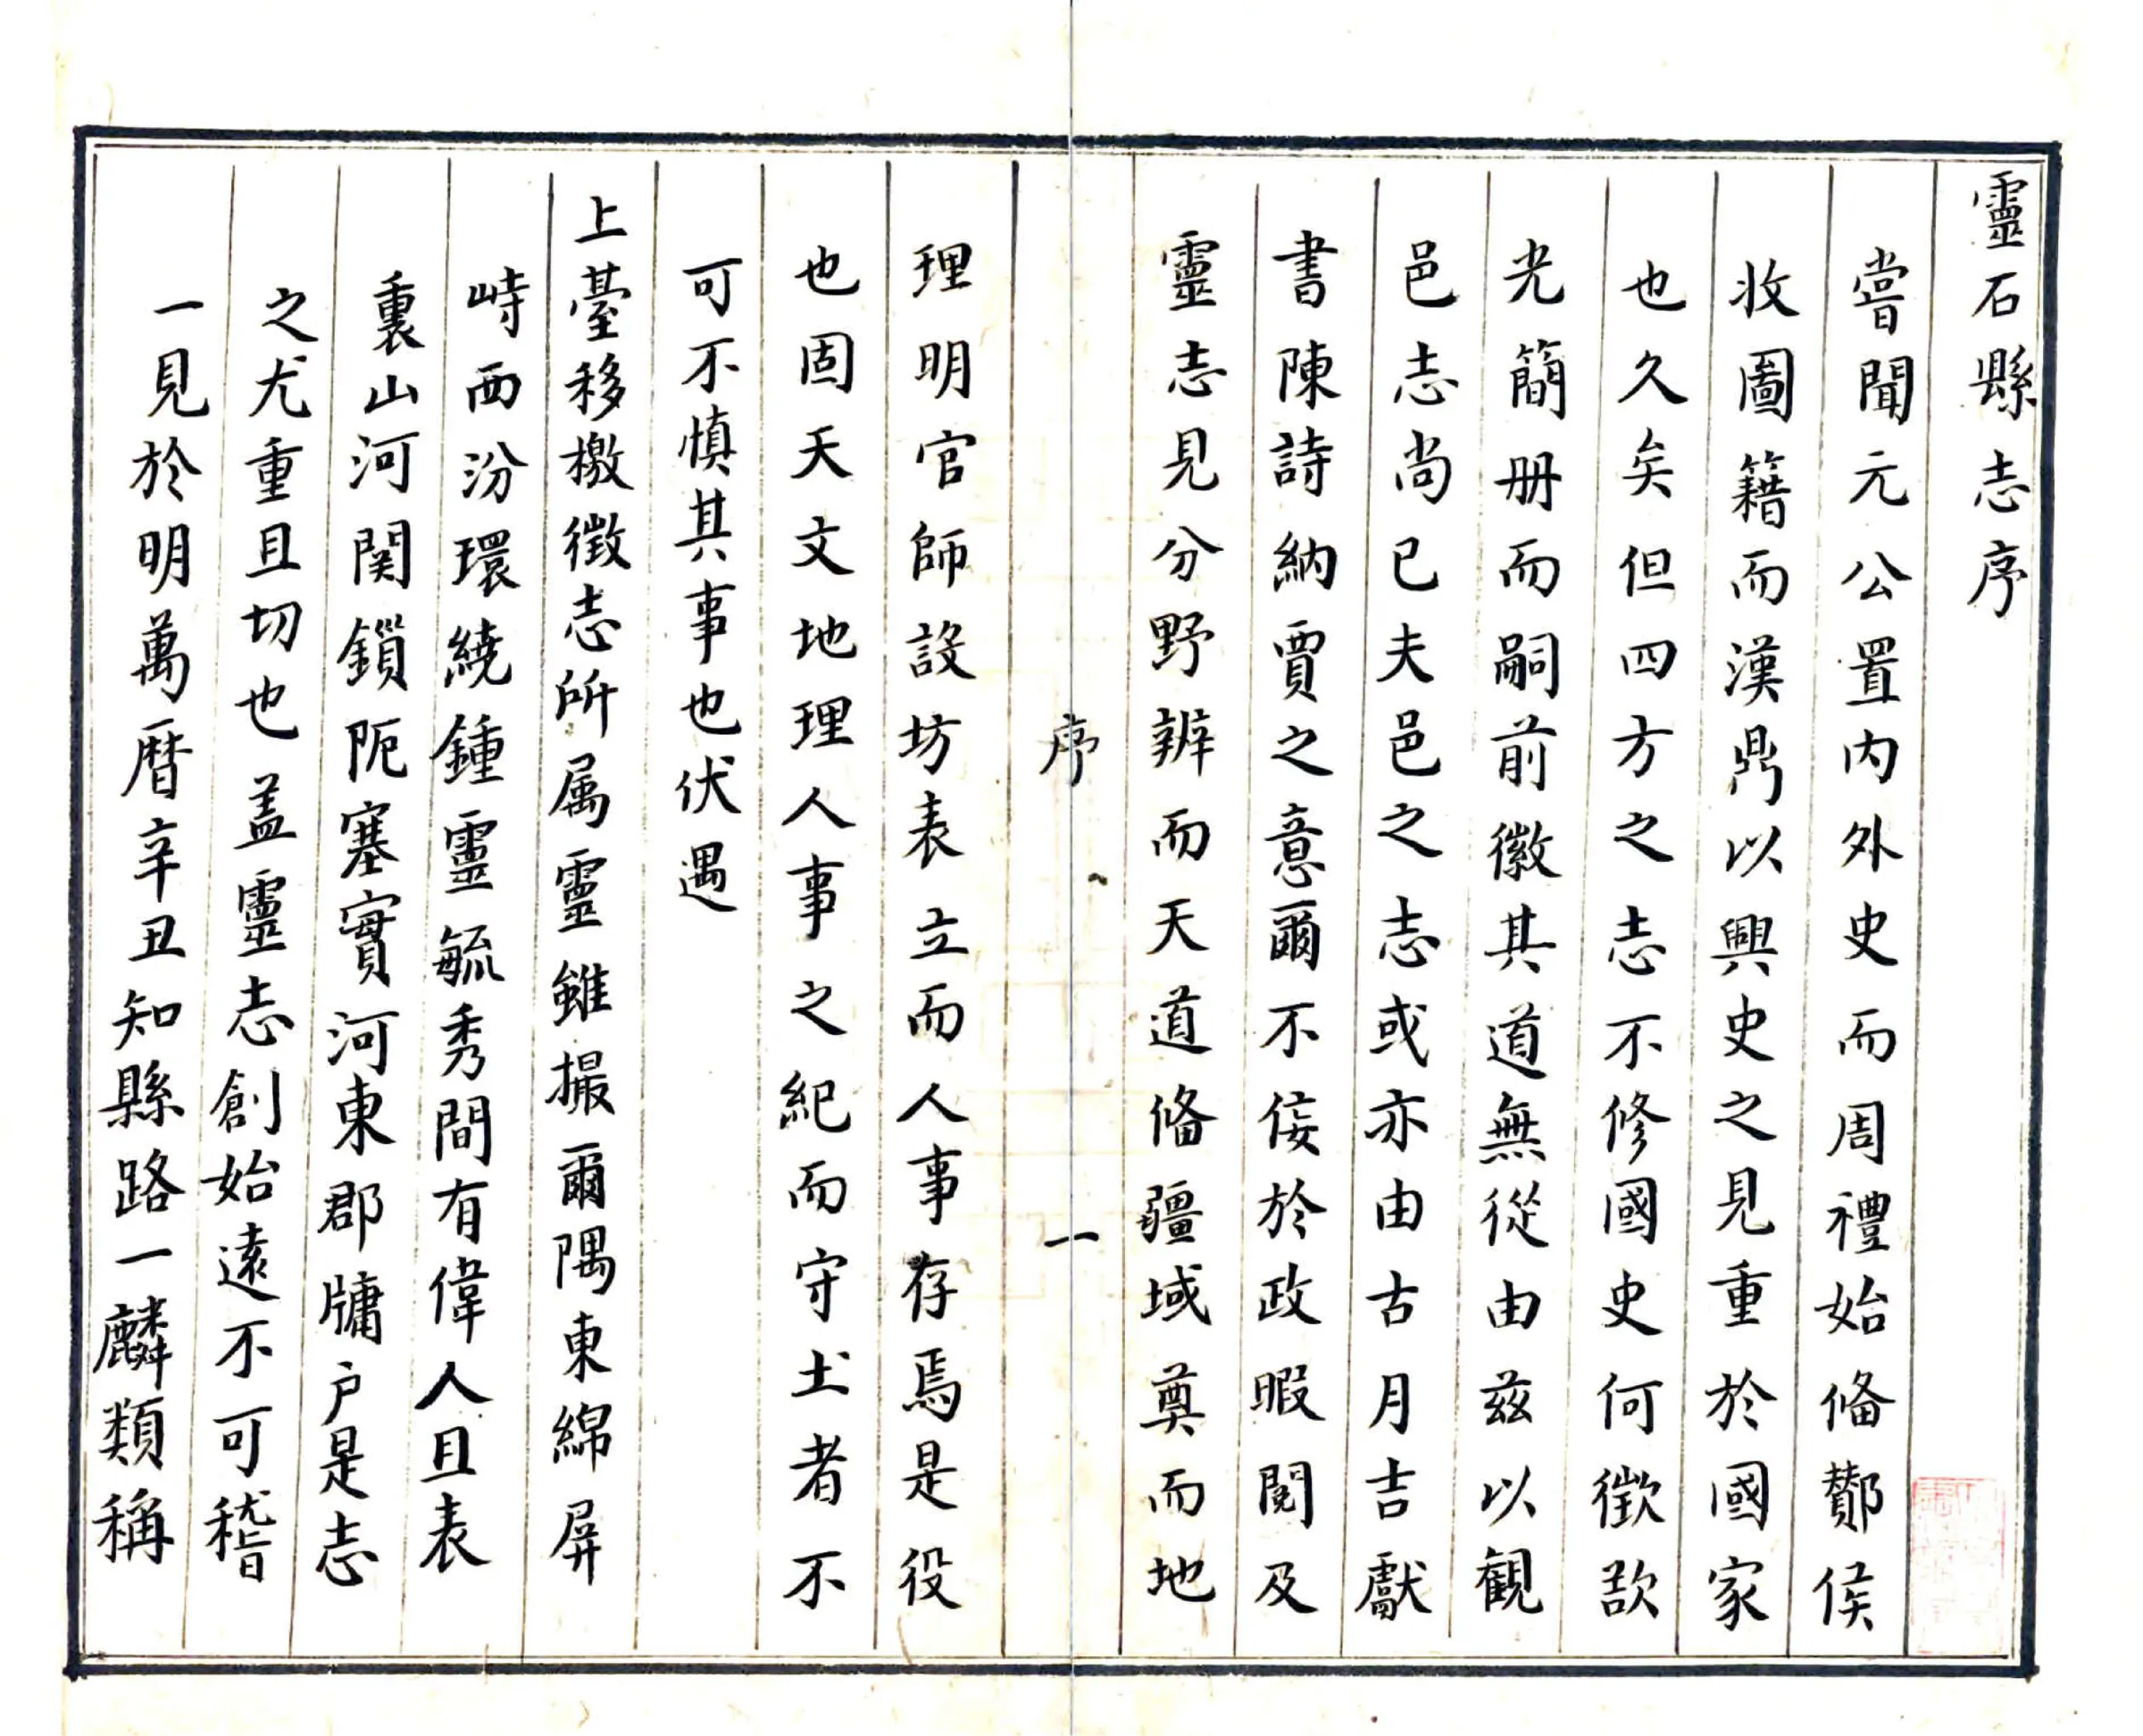 靈石縣志序
嘗聞元公置内外史而周禮始俻酇侯
收圖籍而漢鼎以興史之見重於國家
也久矣但四方之志不修國史何徵故
光簡册而嗣前徽其道無從由兹以観
邑志尚已夫邑之志或亦由古月吉獻
書陳詩納賈之意爾不佞於政暇閱及
靈志見分野辨而天道俻疆域奠而地
序 一
理明官師設坊表立而人事存焉是役
也固天文地理人事之紀而守土者不
可不慎其事也伏遇
上䑓移檄徵志所属靈雖撮爾隅東綿屏
峙西汾環繞鍾靈毓秀間有偉人且表
裏山河関鎖阨塞實河東郡牗户是志
之尤重且切也盖靈志創始逺不可稽
一見於明萬曆辛丑知縣路一麟類稱